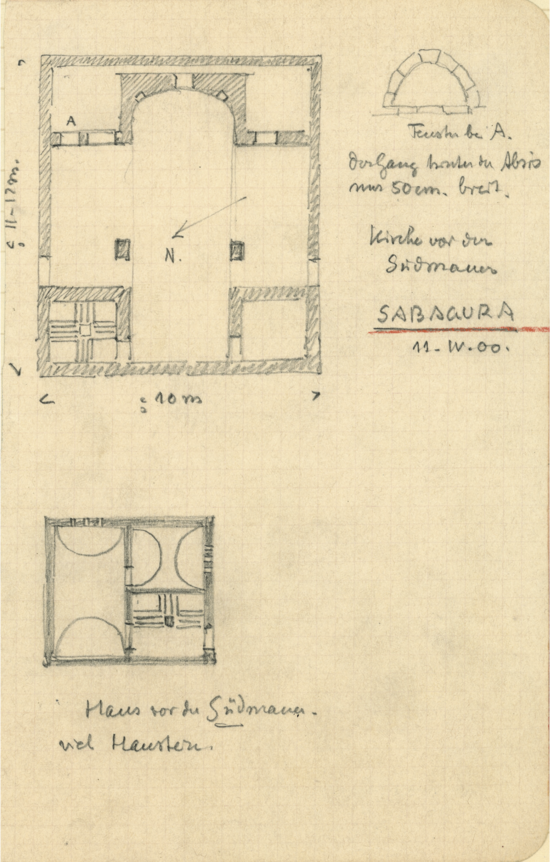 A
N.
c. 11-12 m.
c. 10 m
Fenster bei A.
der Gang hinter der Absis
nur 50 cm. breit.
Kirche vor der
Südmauer
SABAGURA
11-IV-00.
Haus vor der Südmauer.
viel Haustein.